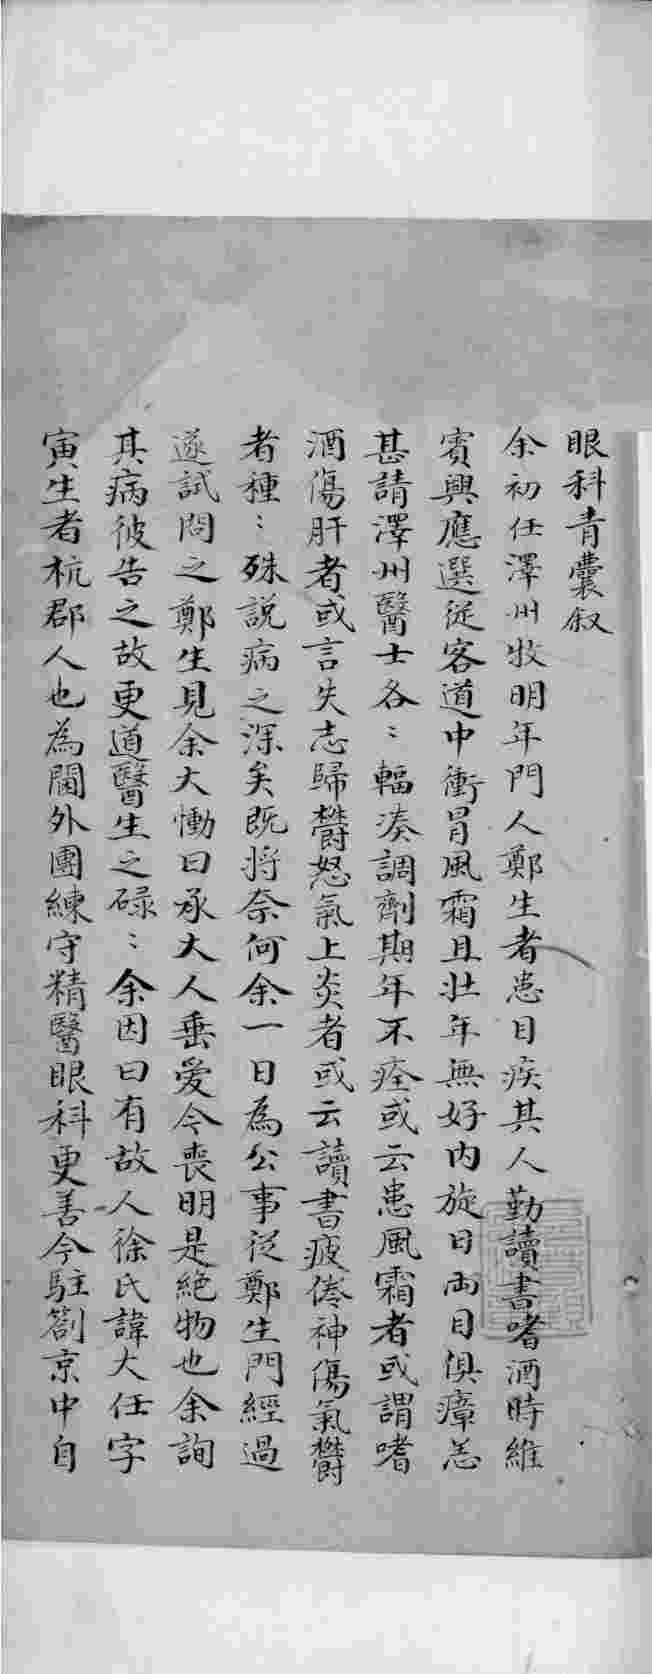 眼科青囊叙
余初任澤州牧明年門人鄭生者患目疾其人勤讀書嗜酒時維
賓興應選從客道中衝冒風霜且壯年無好内旋日両目俱瘴恙
甚請澤州醫士各〻輻凑調劑期年不痊或云患風霜者或謂嗜
酒傷肝者或言失志歸欝怒氣上炎者或云讀書疲倦神傷氣欝
者種〻殊説病之深矣既将奈何余一日為公事從鄭生門經過
遂試問之鄭生見余大慟曰承大人垂愛今喪明是絶物也余詢
其病彼告之故更道醫生之碌〻余因曰有故人徐氏諱大任字
寅生者杭郡人也為閫外團練守精醫眼科更善今駐劄京中自